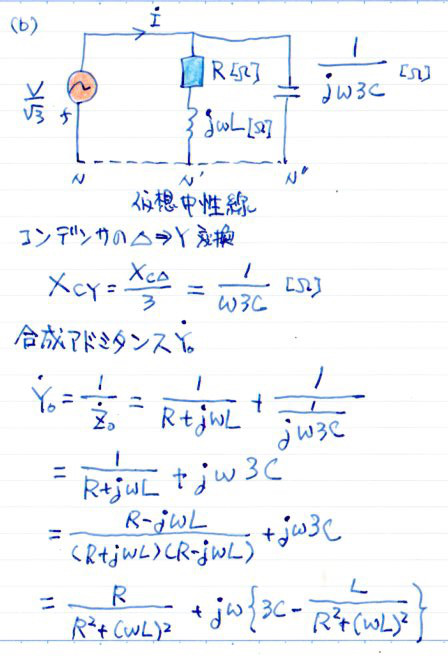 (b)
İ
V/√3 f
R[Ω]
jωL[Ω]
1/(jω3C) [Ω]
N N' N"
仮想中性線
コンデンサの△⇒Y変換
X_CY = X_C△/3 = 1/(ω3C) [Ω]
合成アドミタンスẎ₀
Ẏ₀ = 1/Ż₀ = 1/(R+jωL) + 1/(1/(jω3C))
= 1/(R+jωL) + jω3C
= (R-jωL)/((R+jωL)(R-jωL)) + jω3C
= R/(R²+(ωL)²) + jω{3C - L/(R²+(ωL)²)}